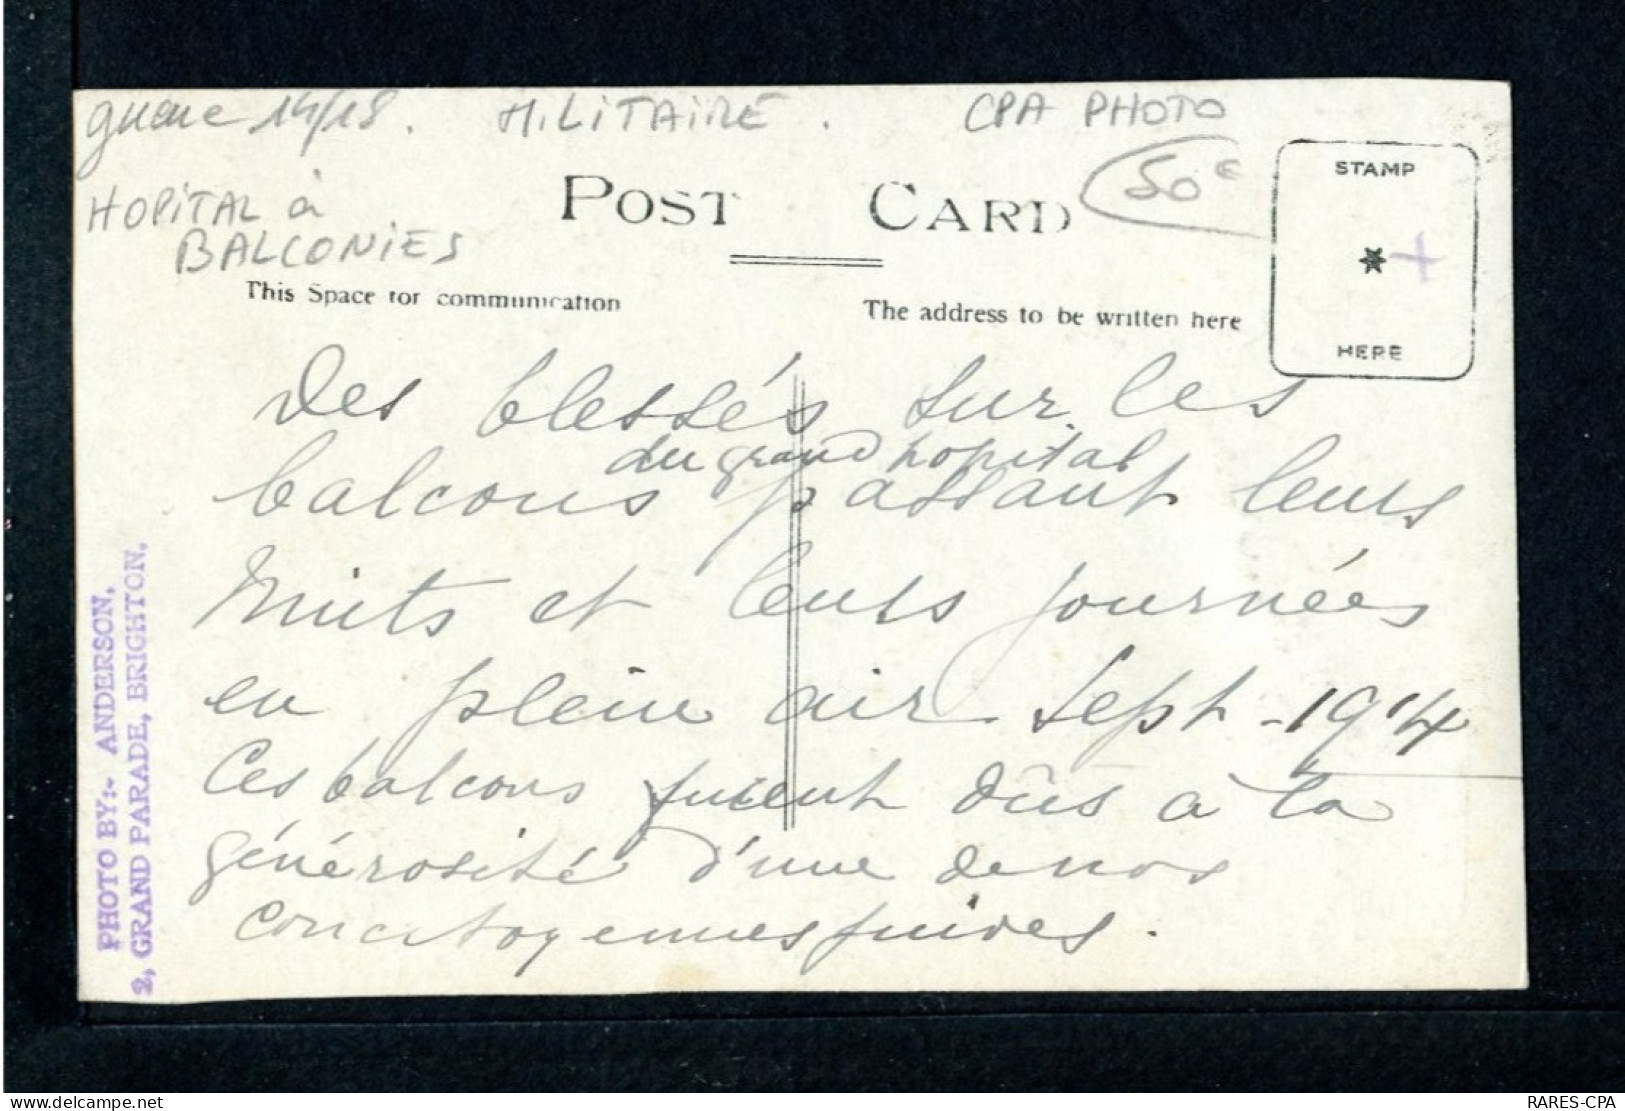 guerre 14/18. MILITAIRE. CPA PHOTO
50€
HOPITAL à
BALCONIES
POST CARD
STAMP
HERE
This Space for communication
The address to be written here
Des blessés sur les
du grand hopital
balcons passant leurs
nuits et leurs journées
en plein air Sept - 1914
Ces balcons furent dûs à la
générosité d'une de nos
concitoyennes juives.
PHOTO BY:- ANDERSON,
2, GRAND PARADE, BRIGHTON.
delcampe.net
RARES-CPA